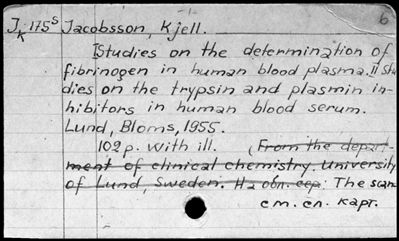 J K 175 S Jacobsson, Kjell. 6
I Studies on the determination of
fibrinogen in human blood plasma. II Stu
dies on the trypsin and plasmin in-
hibitors in human blood serum.
Lund, Bloms, 1955.
102 p. with ill. (From the depart-
ment of clinical chemistry. University
of Lund, Sweden. На обл. сер: The scan
см. сл. карт.